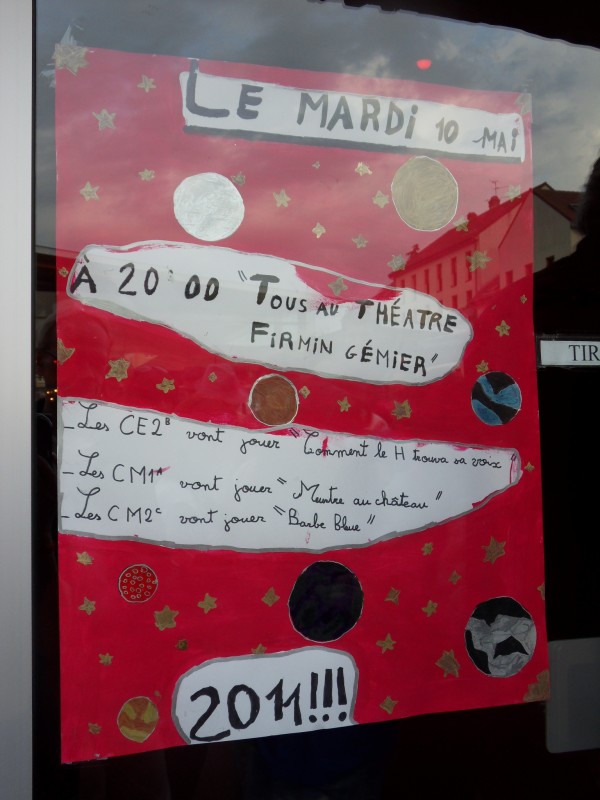 LE MARDI 10 MAI
À 20°00 "TOUS AU THÉATRE
FIRMIN GÉMIER"
- Les CE2ᴮ vont jouer "Comment le H trouva sa voix"
- Les CM1ᴬ vont jouer "Murtre au château"
- Les CM2ᶜ vont jouer "Barbe Bleue"
2011!!!
TIR